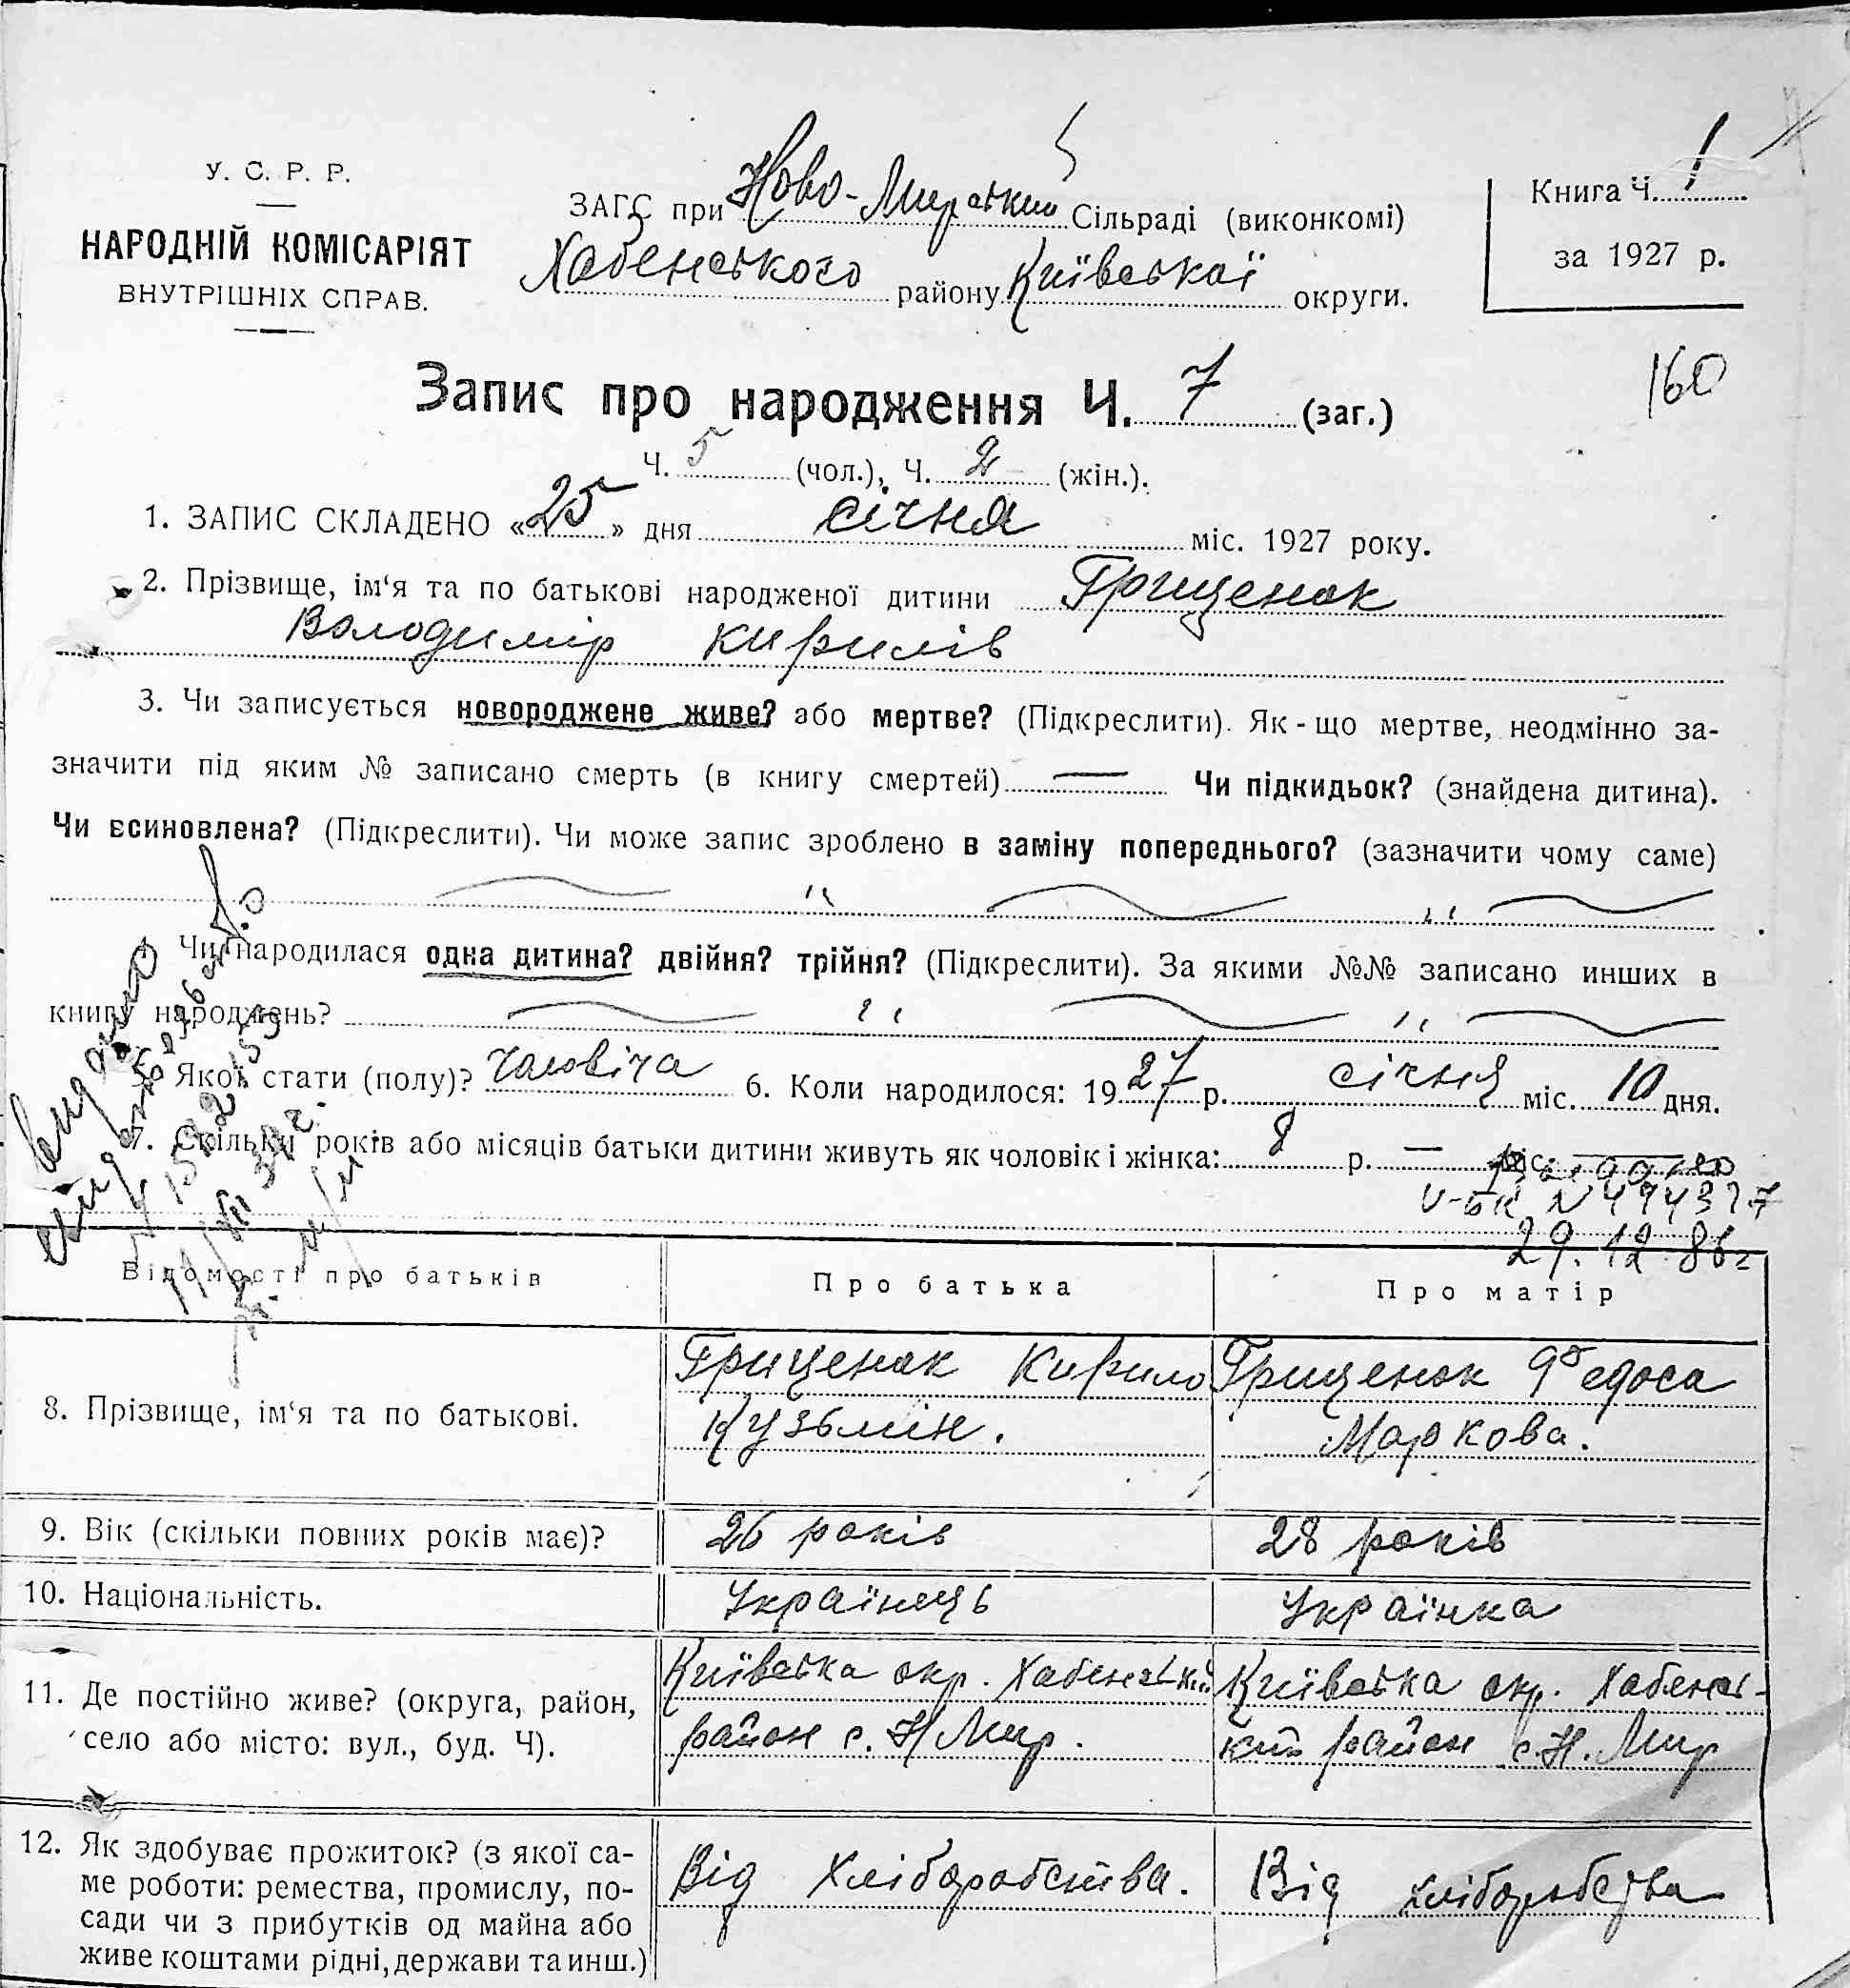 У. С. Р. Р.
НАРОДНІЙ КОМІСАРІЯТ
ВНУТРІШНІХ СПРАВ.
ЗАГС при Ново-Мирський Сільраді (виконкомі)
Хабенського району Київської округи.
Книга Ч. 1
за 1927 р.
160
Запис про народження Ч. 7 (заг.)
Ч. 5 (чол.), Ч. 2 (жін.).
1. ЗАПИС СКЛАДЕНО «25» дня січня міс. 1927 року.
2. Прізвище, ім‘я та по батькові народженої дитини Грищенок
Володимір Кирилів
3. Чи записується новороджене живе? або мертве? (Підкреслити). Як-що мертве, неодмінно за-
значити під яким № записано смерть (в книгу смертей) — Чи підкидьок? (знайдена дитина).
Чи всиновлена? (Підкреслити). Чи може запис зроблено в заміну попереднього? (зазначити чому саме)
Чи народилася одна дитина? двійня? трійня? (Підкреслити). За якими №№ записано инших в
книгу народжень?
Якої стати (полу)? Чоловіча 6. Коли народилося: 1927 р. січня міс. 10 дня.
7. Скільки років або місяців батьки дитини живуть як чоловік і жінка: 8 р. — міс.
видано
V-БК N 494327
29.12.86г
Відомості про батьків
Про батька
Про матір
8. Прізвище, ім‘я та по батькові.
Грищенок Кирило
Кузьмін.
Грищенок Федоса
Маркова.
9. Вік (скільки повних років має)?
26 років
28 років
10. Національність.
Українець
Українка
11. Де постійно живе? (округа, район,
село або місто: вул., буд. Ч).
Київська окр. Хабенський
район с. Н Мир.
Київська окр. Хабенсь-
кий район с. Н. Мир
12. Як здобуває прожиток? (з якої са-
ме роботи: ремества, промислу, по-
сади чи з прибутків од майна або
живе коштами рідні, держави та инш.)
Від хліборобства.
Від хліборобства